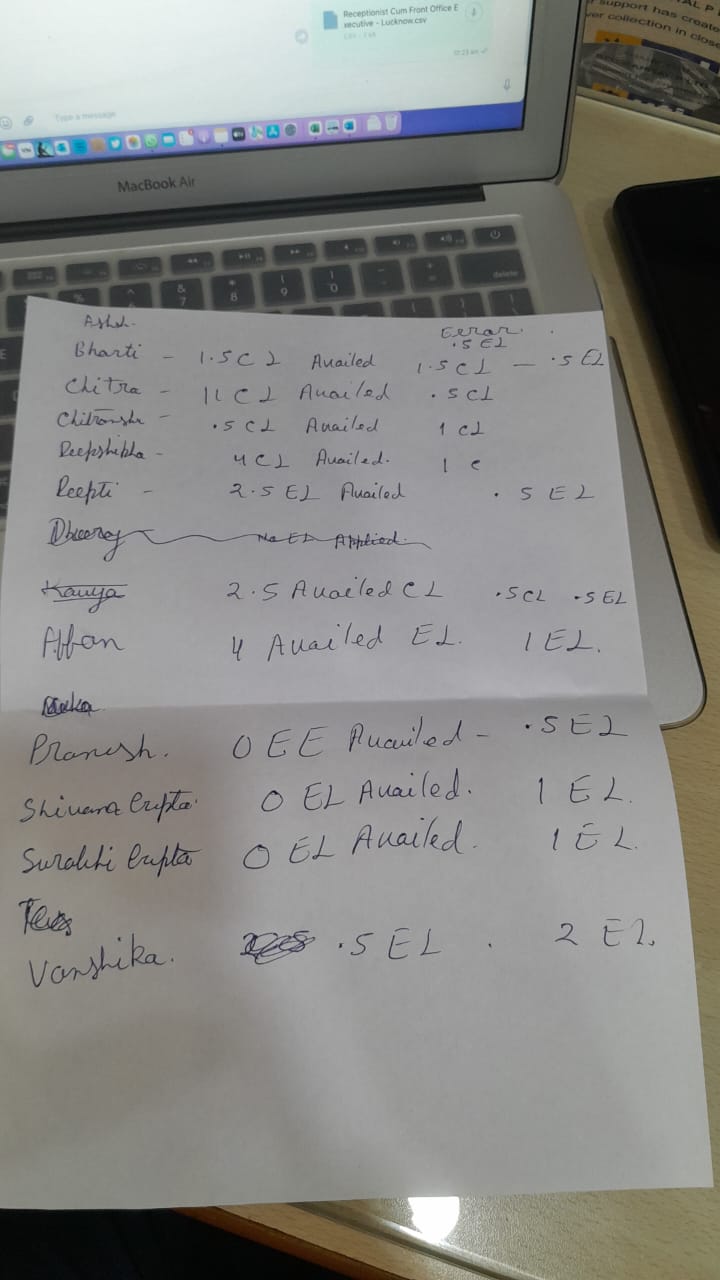 Receptionist Cum Front Office E
xecutive - Lucknow.csv
10:23 am
Type a message
support has create
ver collection in close
MacBook Air
&
7
*
8
(
9
)
0
delete
Errar.
.5 EL
Bharti - 1.5 CL Availed 1.5 CL - .5 EL
Chitra - 11 CL Availed .5 CL
Chitranshi - .5 CL Availed 1 CL
Deepshikha - 4 CL Availed. 1 c
Deepti - 2.5 EL Availed .5 EL
Dheeraj No EL Applied.
Kavya 2.5 Availed CL .5 CL .5 EL
Affan 4 Availed EL. 1 EL.
Pranesh. 0 EE Availed - .5 EL
Shivana Gupta. 0 EL Availed. 1 EL.
Surabhi Gupta 0 EL Availed. 1 EL.
Vanshika. .5 EL . 2 EL.